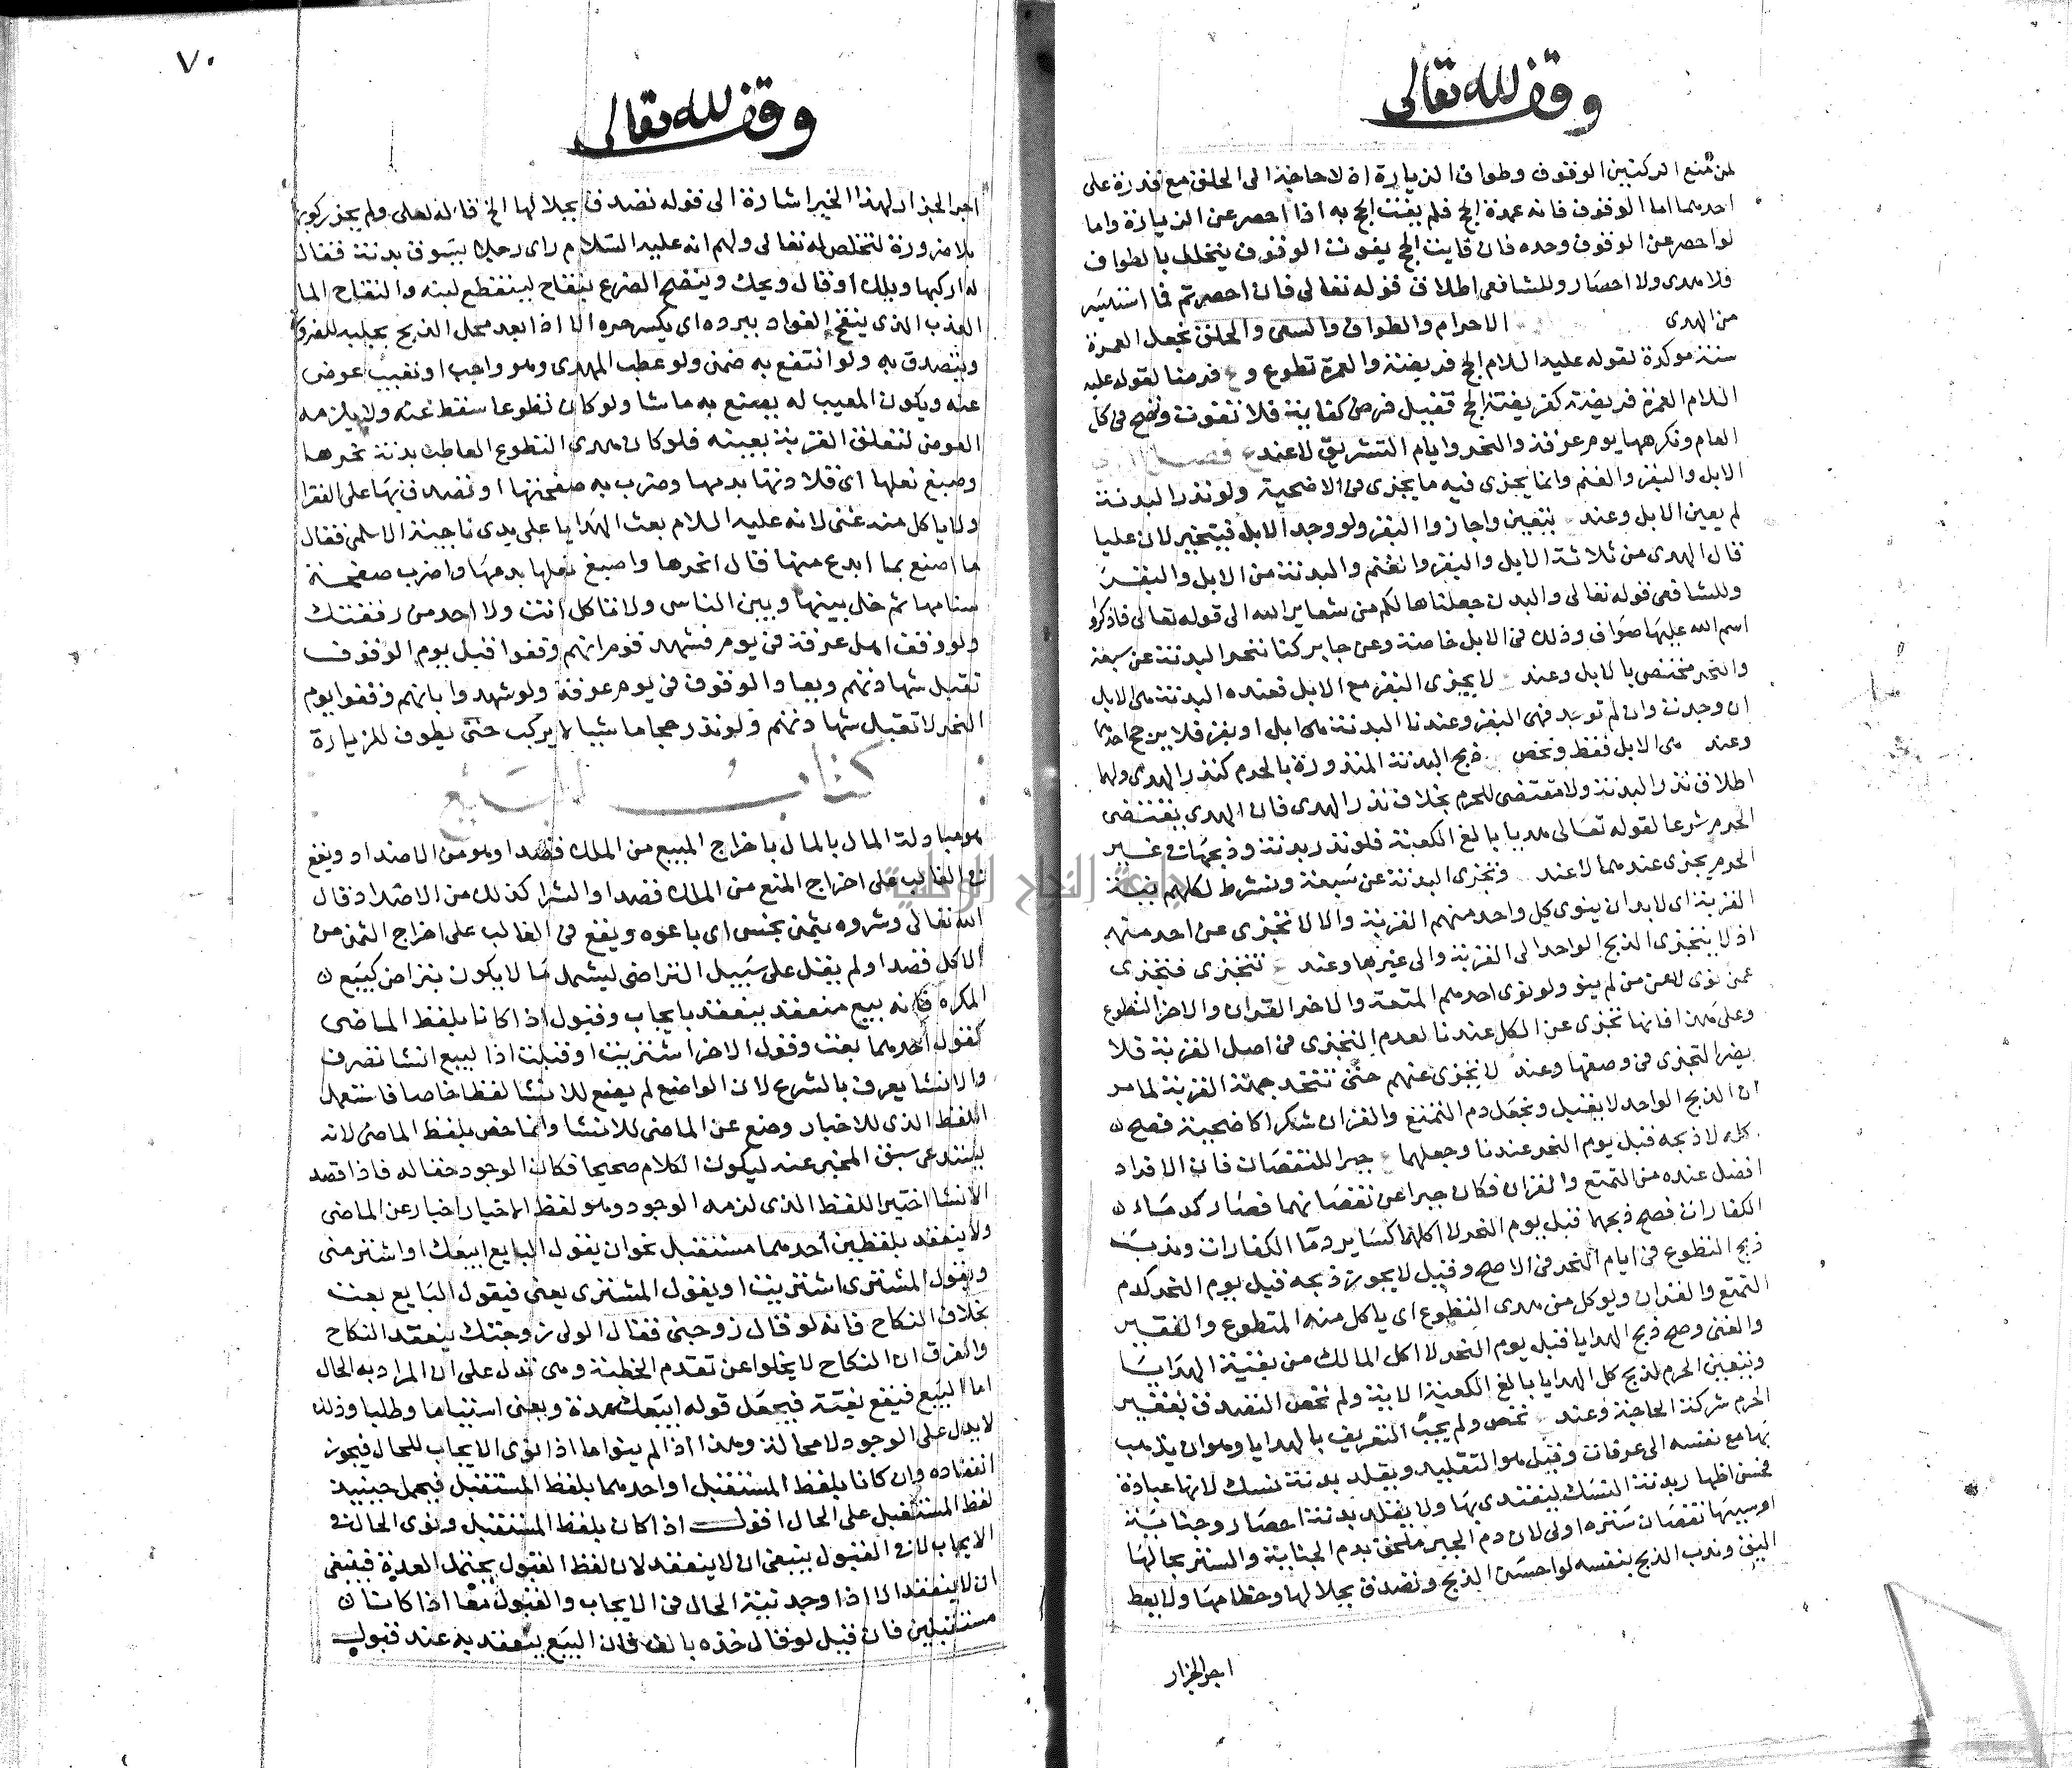 وقف لله تعالى
لمن منع الركنين الوقوف وطواف الزيارة اذ لا حاجة الى الحلق مع قدرة على
احدهما اما الوقوف فانه عمدة الحج فلم يفت الحج به اذا احصر عن الزيارة واما
لو احصر عن الوقوف وحده فان فايت الحج بفوت الوقوف يتحلل بالطواف
فلا هدى ولا احصار وللشافعي اطلاق قوله تعالى فان احصرتم فما استيسر
من الهدى الاحرام والطواف والسعى والحلق نجعل العمرة
سنة موكدة لقوله عليه السلام الحج فريضة والعمرة تطوع و فرضا لقوله عليه
السلام العمرة فريضة كفريضة الحج فقيل فرض كفاية فلا تفوت وتصح فى كل
العام ونكرهها يوم عرفة والنحر وايام التشريق لا عند فصل
الابل والبقر والغنم وانما يجزى فيه ما يجزى فى الاضحية ولو نذر البدنة
لم يعين الابل وعند يتعين واجازوا البقر ولو وجد الابل فيتخير لان عليا
قال الهدى من ثلاثة الابل والبقر والغنم والبدنة من الابل والبقر
وللشافعى قوله تعالى والبدن جعلناها لكم من شعاير الله الى قوله تعالى فاذكروا
اسم الله عليها صواف وذلك فى الابل خاصة وعن جابر كنا ننحر البدنة عن سبعة
والنحر مختص بالابل وعند لا يجزى البقر مع الابل فعنده البدنة هى الابل
ان وجدت وان لم توجد فهى البقر وعندنا البدنة هى ابل او بقر فلا يرجح احدهما
وعند هى الابل فقط ونخص ذبح البدنة المنذورة بالحرم كنذر الهدى ولهما
اطلاق نذر البدنة ولا مقتضى للحرم بخلاف نذر الهدى فان الهدى يقتضى
الحرم شرعا لقوله تعالى هديا بالغ الكعبة فلو نذر بدنة وذبحها فى غير
الحرم يجزى عندهما لا عند ونجزى البدنة عن سبعة ونشرط لكلهم بنية
القربة اى لابد ان ينوى كل واحد منهم القربة والا لا تجزى عن احد منهم
اذ لا يتجزى الذبح الواحد الى القربة والى غيرها وعند تتجزى فتجزى
عمن نوى لا عن من لم ينو ولو نوى احدهم المتعة والاخر القران والاخر التطوع
وعلى هذا فانها تجزى عن الكل عندنا لعدم التجزى فى اصل القربة فلا
يضر التجزى فى وصفها وعند لا تجزى عنهم حتى تتحد جهة القربة لما مر
ان الذبح الواحد لا يقبل ونجعل دم التمتع والقران شكرا كاضحية فصح
كله لا ذبحه قبل يوم النحر عندنا وجعلهما جبرا للنقصان فان الافراد
افضل عنده من التمتع والقران فكان جبرا عن نقصانهما فصار كدماء
الكفارات فصح ذبحهما قبل يوم النحر لا اكلهما كساير دما الكفارات وندب
ذبح التطوع فى ايام النحر فى الاصح وقيل لا يجوز ذبحه قبل يوم النحر كدم
التمتع والقران ويوكل من هدى التطوع اى ياكل منه المتطوع والفقير
والغنى وصح ذبح الهدايا قبل يوم النحر لا اكل المالك من بقية الهدايا
ويتعين الحرم لذبح كل الهدايا بالغ الكعبة الاية ولم نخص التصدق بفقير
الحرم شركة الحاجة وعند نخص ولم يجب التعريف بالهدايا وهو ان يذهب
بها مع نفسه الى عرفات وقيل هو التقليد ويقلد بدنة نسك لانها عبادة
فحسن اظهار بدنة النسك ليقتدى بها ولا يقلد بدنة احصار وجناية
اوسببها نقصان ستره اولى لان دم الجبر ملحق بدم الجناية والستر بحالها
اليق وندب الذبح بنفسه لو احسن الذبح وتصدق بجلالها وخطامها ولا يعط
اجر الجزار
٧٠
وقف لله تعالى
اجر الجزار لهذا الخبر اشارة الى قوله تصدق بجلالها الخ قاله لعلى ولم يجز ركوبه
بلا ضرورة لتخلص لله تعالى ولهم انه عليه السلام راى رجلا يسوق بدنة فقال
له اركبها ويلك او قال ويحك وينضح الضرع بنقاح لينقطع لبنه والنقاح الما
العذب الذى ينقخ الفواد ببرده اى يكسر حره الا اذا بعد محل الذبح يحلبه للضرر
ويتصدق به ولو انتفع به ضمن ولو عطب الهدى وهو واجب او تعيب عوض
عنه ويكون المعيب له يصنع به ماشا ولو كان تطوعا سقط عنه ولا يلزمه
العوض لتعلق القربة بعينه فلو كان هدى التطوع العاطب بدنة نحرها
وصبغ نعلها اى قلادتها بدمها وضرب به صفحتها او تصدق بها على الفقرا
ولا ياكل منه غنى لانه عليه السلام بعث الهدايا على يدى ناجية الاسلمى فقال
ما اصنع بما ابدع منها قال انحرها واصبغ نعلها بدمها واضرب صفحة
سنامها ثم خل بينها وبين الناس ولا تاكل انت ولا احد من رفقتك
ولو وقف اهل عرفة فى يوم فشهد قوم انهم وقفوا قبل يوم الوقوف
تقبل شهادتهم ويعاد الوقوف فى يوم عرفة ولو شهدوا بانهم وقفوا يوم
النحر لا تقبل شهادتهم ولو نذر حجا ماشيا لا يركب حتى يطوف للزيارة
كتاب البيع
هو مبادلة المال بالمال باخراج المبيع من الملك قصدا وهو من الاضداد ويقع
فى الغالب على اخراج المنع من الملك قصدا والشرا كذلك من الاضداد قال
الله تعالى وشروه بثمن بخس اى باعوه ويقع فى الغالب على اخراج الثمن من
الاكل قصدا ولم يقل على سبيل التراضى ليشمل ما لا يكون بتراض كبيع
المكره فانه بيع منعقد ينعقد بايجاب وقبول اذا كانا بلفظ الماضى
كقول احدهما بعت وقول الاخر اشتريت او قبلت اذا البيع انشا تصرف
والانشا يعرف بالشرع لان الواضع لم يضع للانشا لفظا خاصا فاستعمل
اللفظ الذى للاخبار وضع عن الماضى للانشا وانما خص بلفظ الماضى لانه
يستدعى سبق المخبر عنه ليكون الكلام صحيحا فكان الوجود حقا له فاذا قصد
الانشا اختير اللفظ الذى لزمه الوجود وهو لفظ الاخبار اخبار عن الماضى
ولا ينعقد بلفظين احدهما مستقبل نحو ان يقول البايع ابيعك او اشتر منى
ويقول المشترى اشتريت او يقول المشترى بعنى فيقول البايع بعت
بخلاف النكاح فانه لو قال زوجنى فقال الولى زوجتك ينعقد النكاح
والفرق ان النكاح لا يخلوا عن تقدم الخطبة وهى تدل على ان المراد به الحال
اما البيع فيقع بغتة فيجعل قوله ابيعك عدة وبعنى استياما وطلبا وذلك
لا يدل على الوجود لا محالة وهذا اذا لم ينو اما اذا نوى الايجاب للحال فيجوز
انعقاده وان كانا بلفظ المستقبل او احدهما بلفظ المستقبل فيحمل حينيذ
لفظ المستقبل على الحال اقول اذا كان بلفظ المستقبل ونوى الحال فى
الايجاب لا فى القبول ينبغى ان لا ينعقد لان لفظ القبول يحتمل العدة فينبغى
ان لا ينعقد الا اذا وجد نية الحال فى الايجاب والقبول معا اذا كانا
مستقبلين فان قيل لو قال خذه بالف فان البيع ينعقد به عند قبول